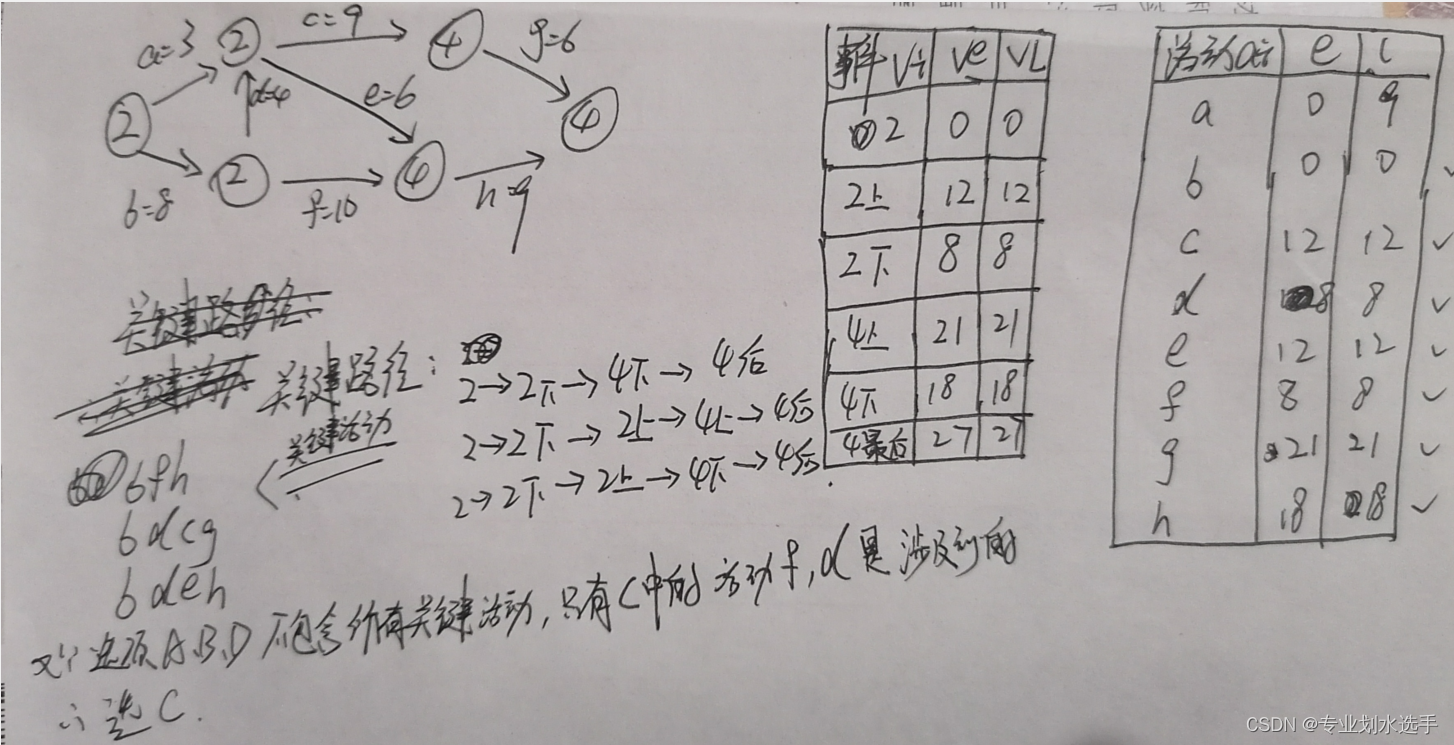 a=3
②
c=9
④
g=6
②
d=4
e=6
④
b=8
②
f=10
④
h=9
事件Vi Ve VL
2 0 0
2上 12 12
2下 8 8
4上 21 21
4下 18 18
4最后 27 27
活动ai e l
a 0 9
b 0 0 ✓
c 12 12 ✓
d 8 8 ✓
e 12 12 ✓
f 8 8 ✓
g 21 21 ✓
h 18 18 ✓
关键路径:
关键活动 关键路径:
2→2下→4下→4后
2→2下→2上→4上→4后
2→2下→2上→4下→4后.
关键活动
bfh
bdcg
bdeh
选项A.B.D不包含所有关键活动,只有C中的活动f,d是涉及到的
∴选C.
CSDN @专业划水选手